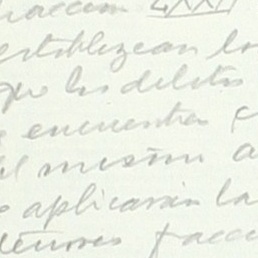 fracción LXXII
establezcan lo
que los delitos
encuentra
el mismo a
aplicarán la
fracc